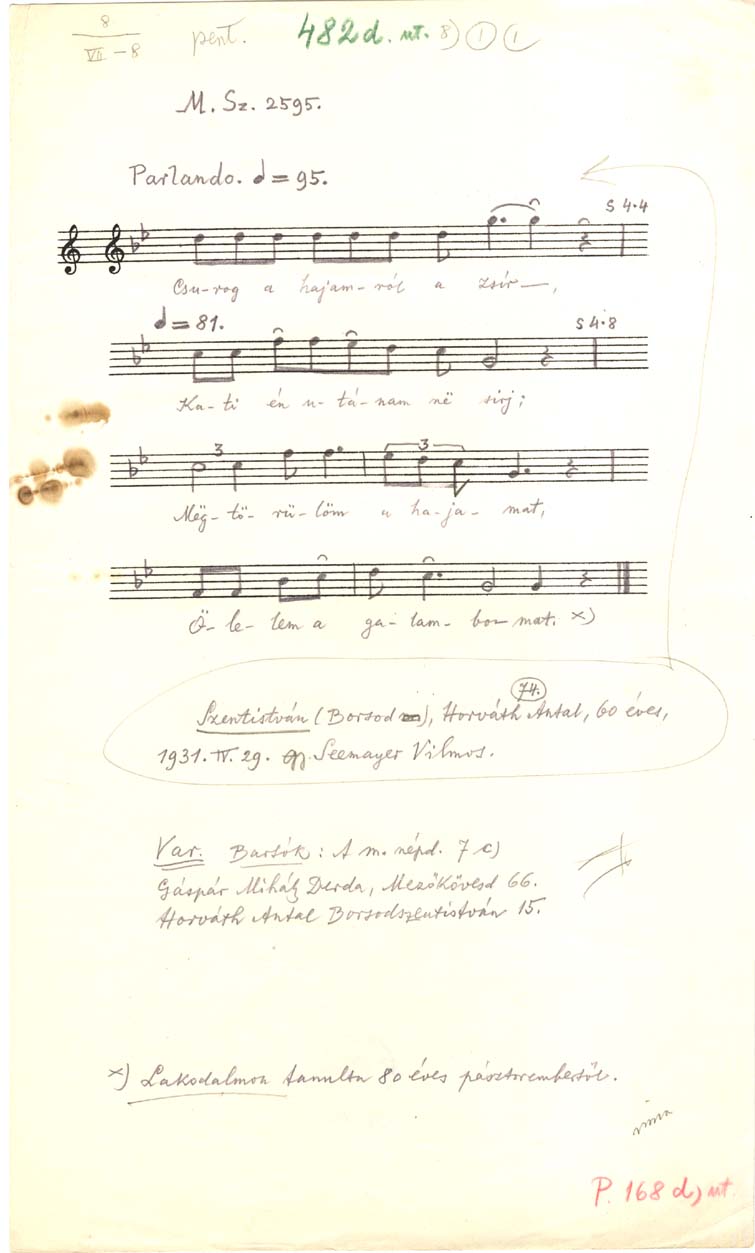 8
VII – 8
pent.
482 d. ut.
8) 1 1
M. Sz. 2595.
Parlando. = 95.
S 4·4
Csu-rog a hajam-ról a zsír—,
= 81.
S 4·8
Ka-ti én u-tá-nam në sirj;
3
3
Mëg-tö-rü-löm a ha-ja-mat,
Ö-le-lem a ga-lam-bo-mat. x)
74.
Szentistván (Borsod), Horváth Antal, 60 éves,
1931. IV. 29. Gy. Seemayer Vilmos.
Var. Bartók: A m. népd. 7 c)
Gáspár Mihály Derda, Mezőkövesd 66.
Horváth Antal Borsodszentistván 15.
x) Lakodalmon tanulta 80 éves pásztorembertől.
P. 168 d) ut.